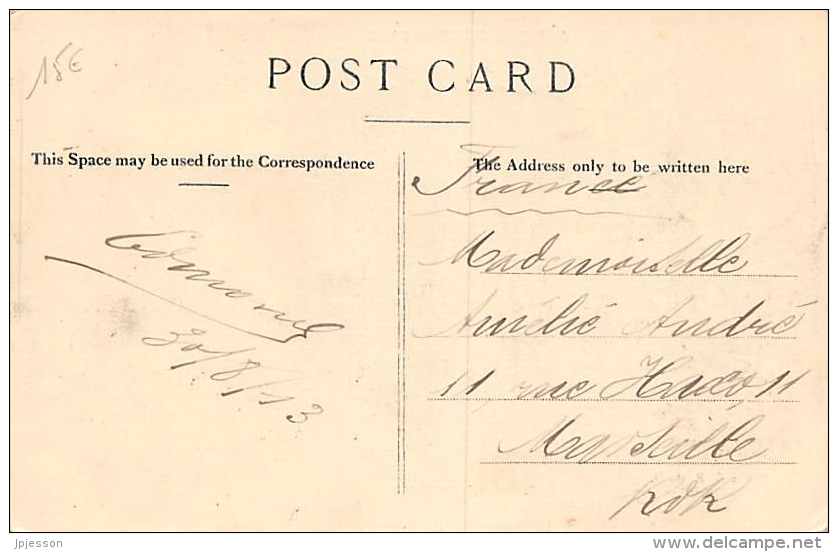 15€
POST CARD
This Space may be used for the Correspondence
The Address only to be written here
France
Edmond
30/8/13
Mademoiselle
Amélie André
11, rue Haxo, 11
Marseille
jpjesson
delcampe.net